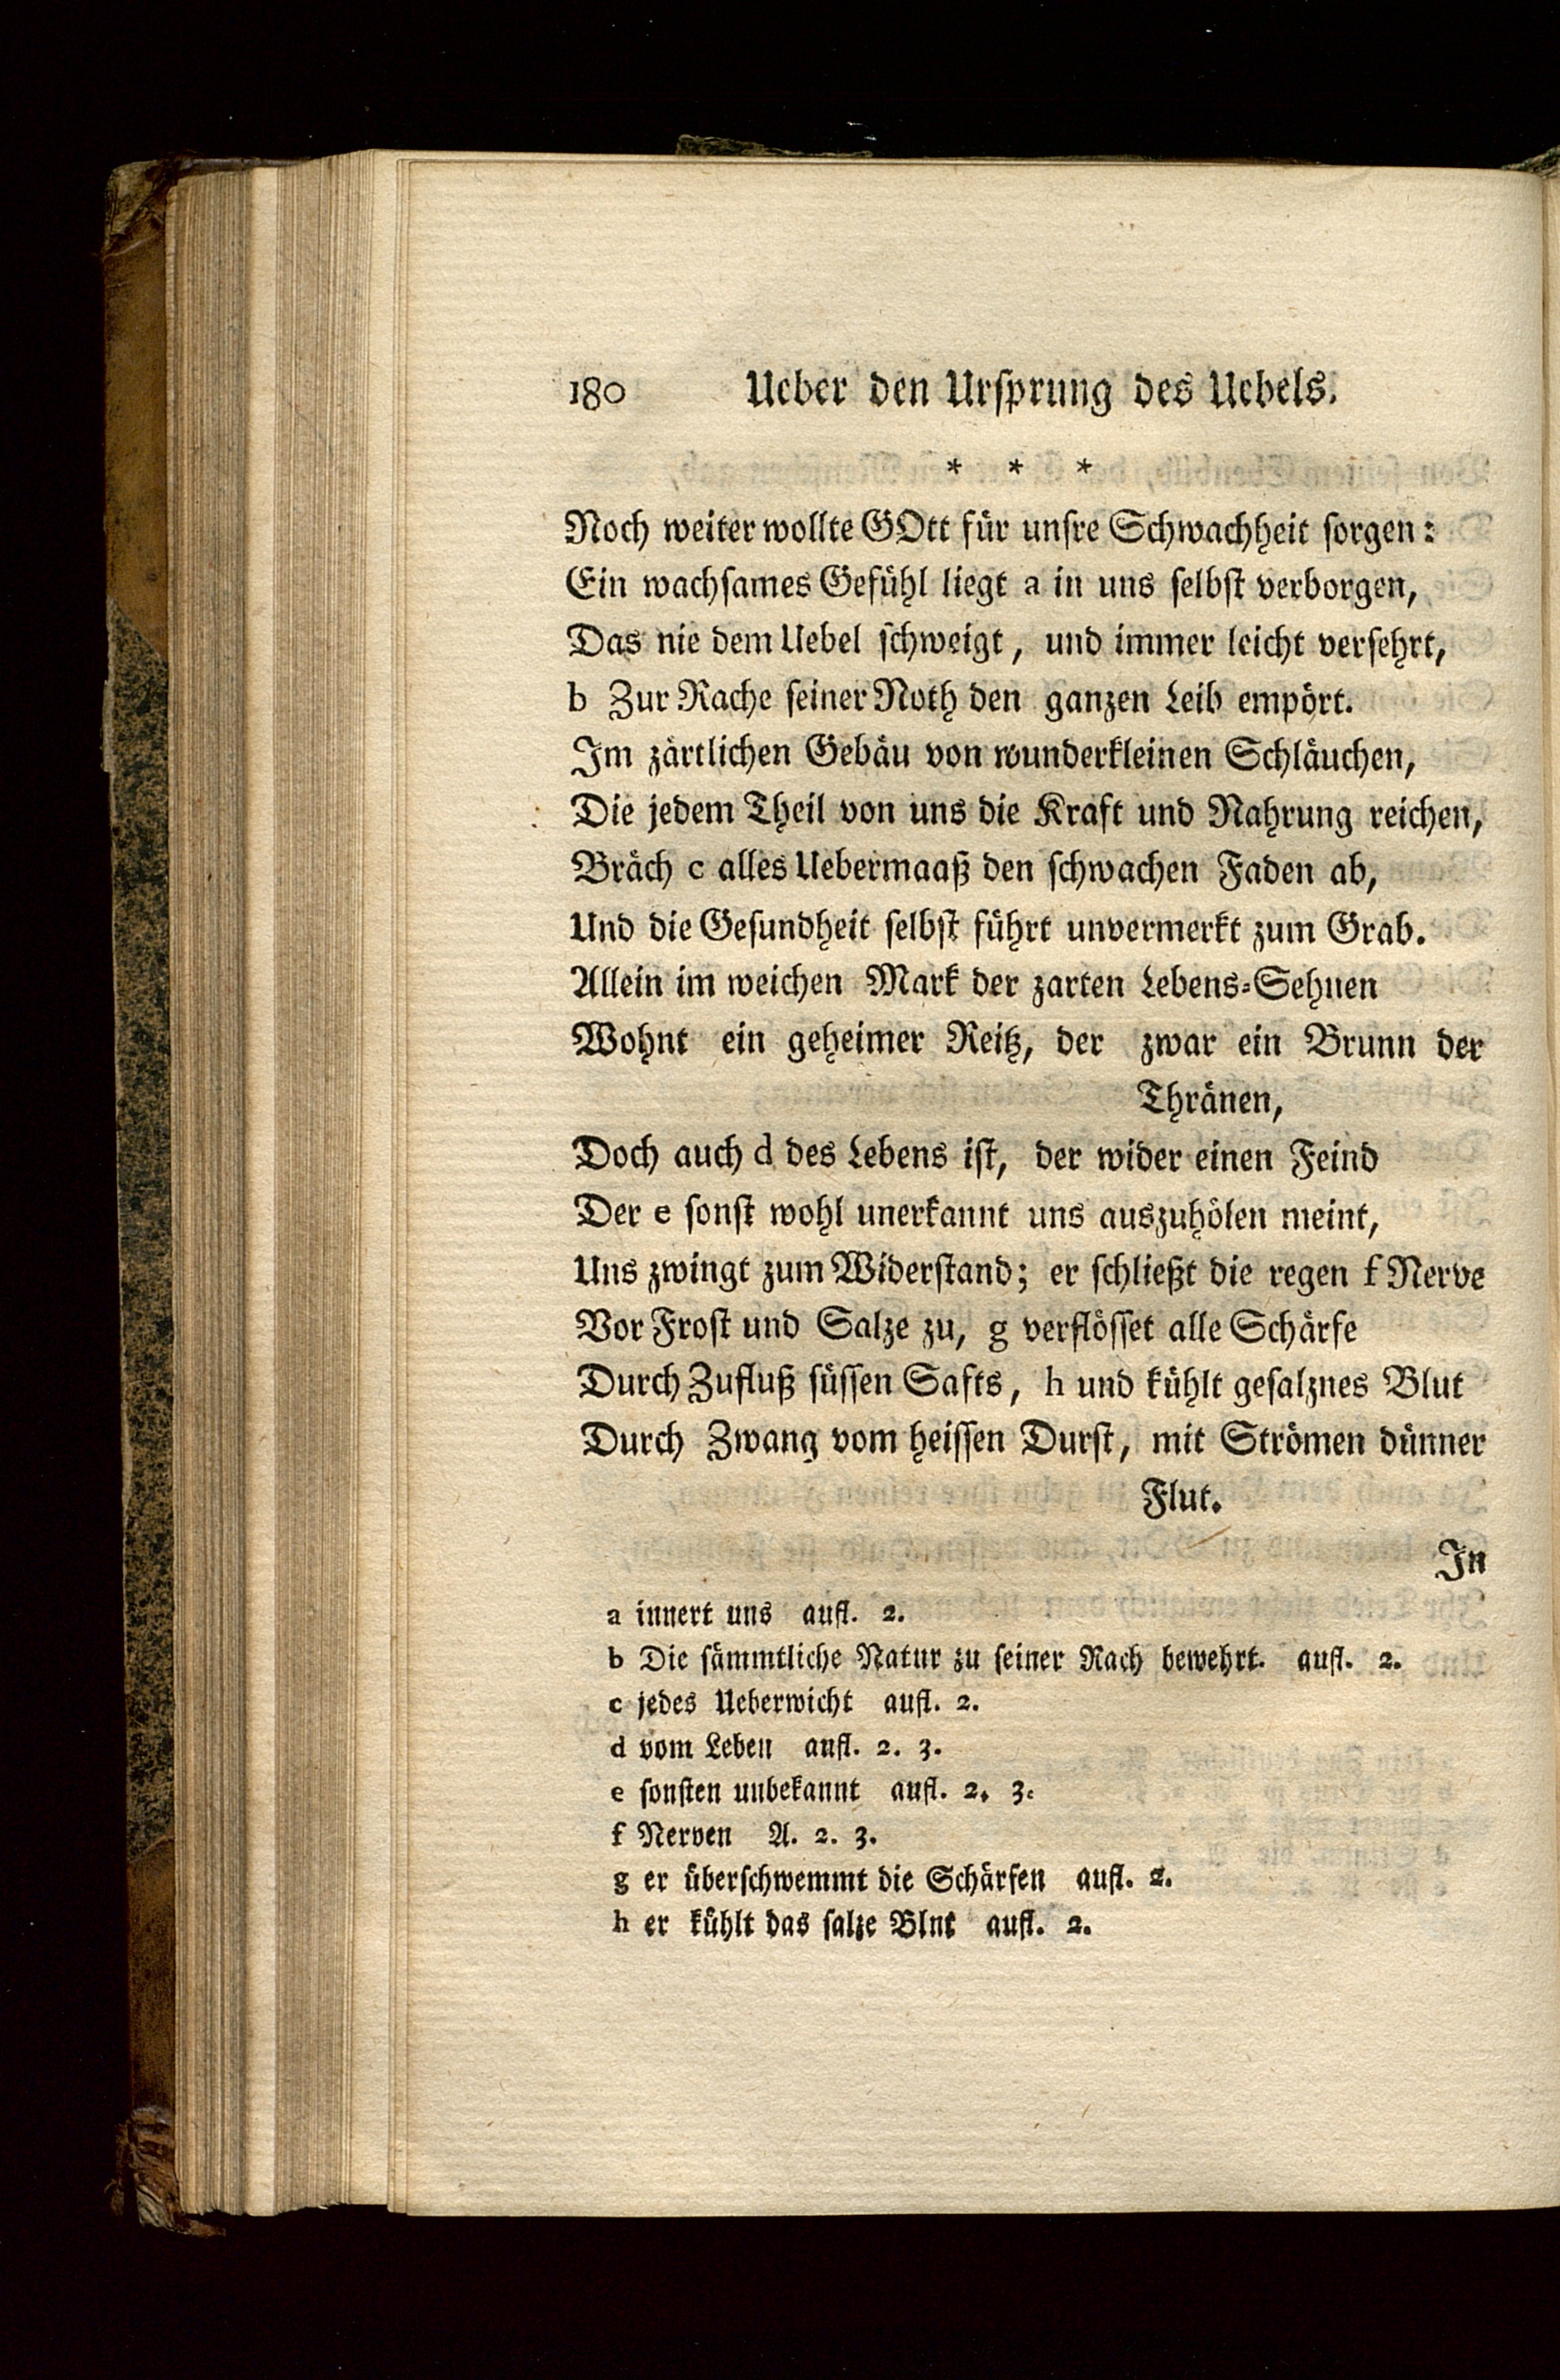 180 Ueber den Ursprung des Uebels.
* * *
Noch weiter wollte GOtt für unsre Schwachheit sorgen:
Ein wachsames Gefühl liegt a in uns selbst verborgen,
Das nie dem Uebel schweigt, und immer leicht versehrt,
b Zur Rache seiner Noth den ganzen Leib empört.
Im zärtlichen Gebäu von wunderkleinen Schläuchen,
Die jedem Theil von uns die Kraft und Nahrung reichen,
Bräch c alles Uebermaaß den schwachen Faden ab,
Und die Gesundheit selbst führt unvermerkt zum Grab.
Allein im weichen Mark der zarten Lebens-Sehnen
Wohnt ein geheimer Reitz, der zwar ein Brunn der
Thränen,
Doch auch d des Lebens ist, der wider einen Feind
Der e sonst wohl unerkannt uns auszuhölen meint,
Uns zwingt zum Widerstand; er schließt die regen f Nerve
Vor Frost und Salze zu, g verflösset alle Schärfe
Durch Zufluß süssen Safts, h und kühlt gesalznes Blut
Durch Zwang vom heissen Durst, mit Strömen dünner
Flut.
In
a innert uns aufl. 2.
b Die sämmtliche Natur zu seiner Rach bewehrt. aufl. 2.
c jedes Ueberwicht aufl. 2.
d vom Leben aufl. 2. 3.
e sonsten unbekannt aufl. 2. 3.
f Nerven A. 2. 3.
g er überschwemmt die Schärfen aufl. 2.
h er kühlt das salze Blnt aufl. 2.